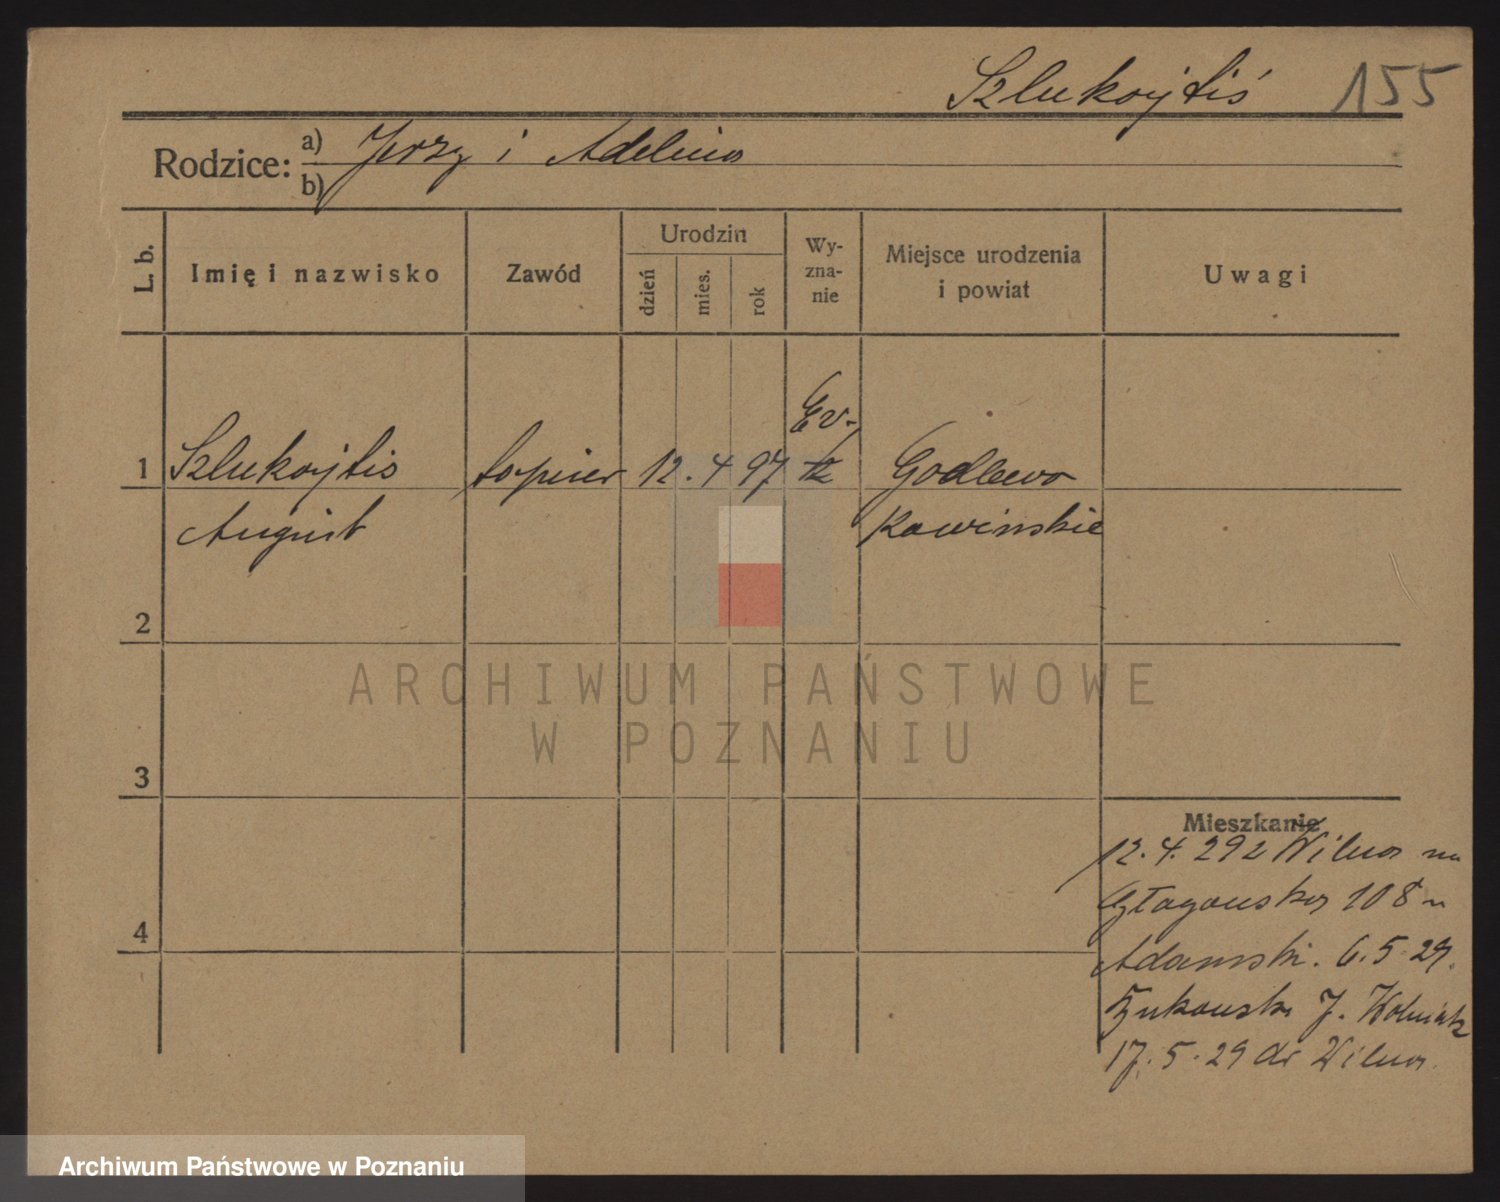 Szlukojtiś 155
Rodzice: a) Jerzy i Adelina
b)
L. b. Imię i nazwisko Zawód Urodzin dzień mies. rok Wyznanie Miejsce urodzenia i powiat Uwagi
Ev.
1 Szlukojtis 12. 4 97 Godlewo
August Kowinskie
2
ARCHIWUM PAŃSTWOWE
W POZNANIU
3
Mieszkanie
12. 4. 292 Wilna na
4 108
Adamski. 6. 5. 29.
Żukowski J.
17. 5. 29 do Wilna
Archiwum Państwowe w Poznaniu